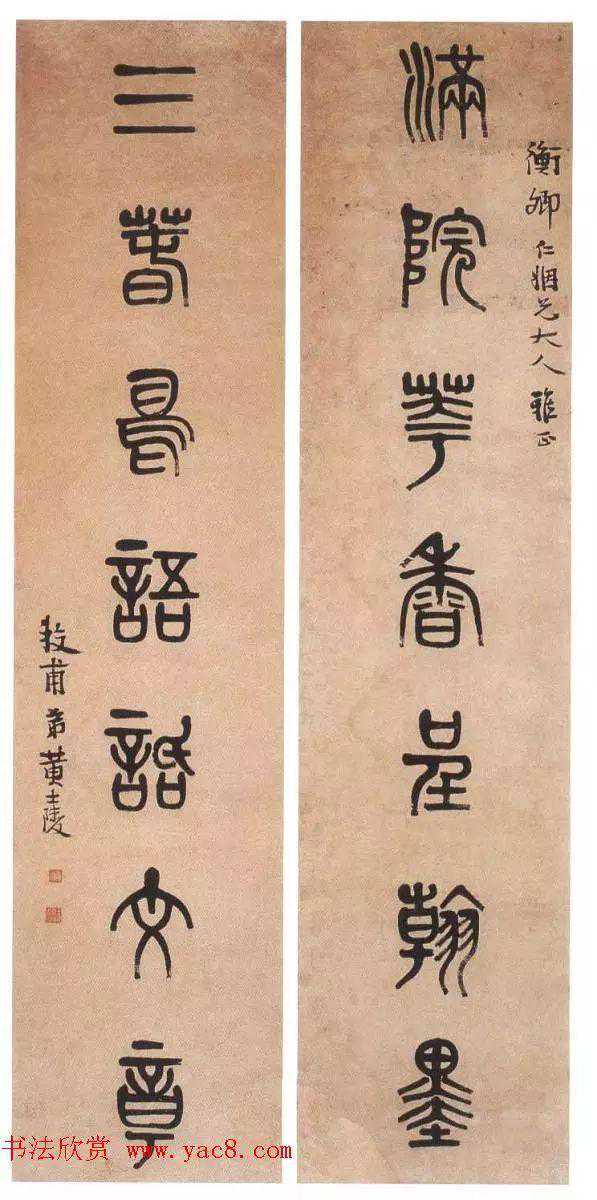 滿院華香呈翰墨
衡卿仁姻兄大人雅正
三春語話文章
牧甫弟黃士陵
书法欣赏 www.yac8.com